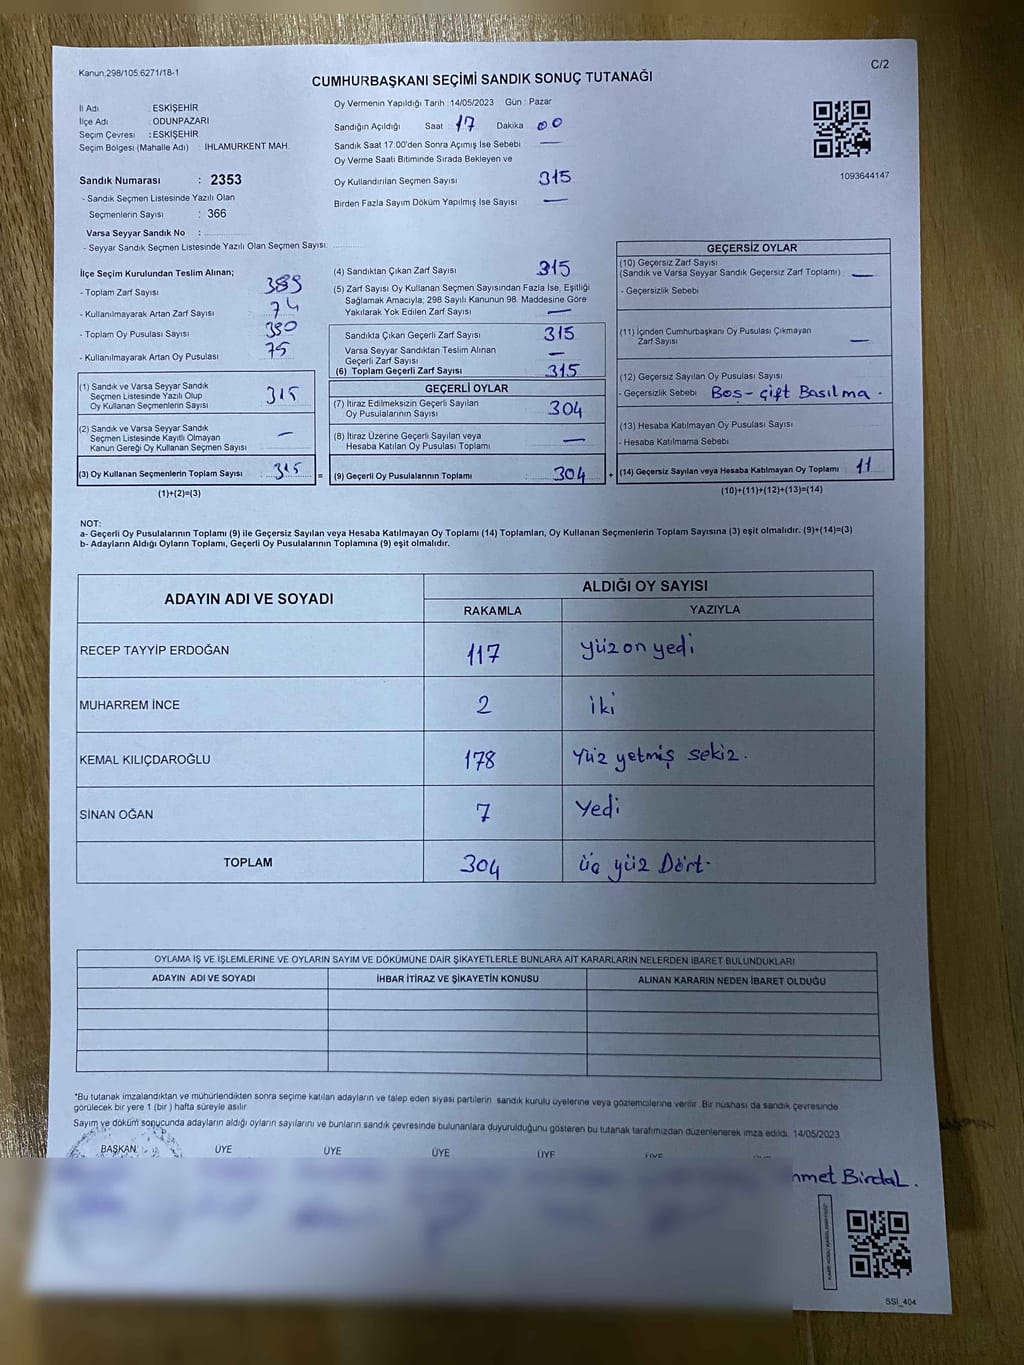 Kanun.298/105.6271/18-1
C/2
CUMHURBAŞKANI SEÇİMİ SANDIK SONUÇ TUTANAĞI
İl Adı : ESKİŞEHİR
İlçe Adı : ODUNPAZARI
Seçim Çevresi : ESKİŞEHİR
Seçim Bölgesi (Mahalle Adı) : IHLAMURKENT MAH.
Sandık Numarası : 2353
- Sandık Seçmen Listesinde Yazılı Olan
Seçmenlerin Sayısı : 366
Varsa Seyyar Sandık No :
- Seyyar Sandık Seçmen Listesinde Yazılı Olan Seçmen Sayısı:
Oy Vermenin Yapıldığı Tarih : 14/05/2023 Gün : Pazar
Sandığın Açıldığı Saat 17 Dakika 00
Sandık Saat 17:00'den Sonra Açımış İse Sebebi —
Oy Verme Saati Bitiminde Sırada Bekleyen ve
Oy Kullandırılan Seçmen Sayısı 315
Birden Fazla Sayım Döküm Yapılmış İse Sayısı —
1093644147
İlçe Seçim Kurulundan Teslim Alınan;
- Toplam Zarf Sayısı 389
- Kullanılmayarak Artan Zarf Sayısı 74
- Toplam Oy Pusulası Sayısı 390
- Kullanılmayarak Artan Oy Pusulası 75
(1) Sandık ve Varsa Seyyar Sandık
Seçmen Listesinde Yazılı Olup
Oy Kullanan Seçmenlerin Sayısı 315
(2) Sandık ve Varsa Seyyar Sandık
Seçmen Listesinde Kayıtlı Olmayan
Kanun Gereği Oy Kullanan Seçmen Sayısı —
(3) Oy Kullanan Seçmenlerin Toplam Sayısı : 315 =
(1)+(2)=(3)
(4) Sandıktan Çıkan Zarf Sayısı 315
(5) Zarf Sayısı Oy Kullanan Seçmen Sayısından Fazla İse, Eşitliği
Sağlamak Amacıyla; 298 Sayılı Kanunun 98. Maddesine Göre
Yakılarak Yok Edilen Zarf Sayısı —
Sandıkta Çıkan Geçerli Zarf Sayısı 315
Varsa Seyyar Sandıktan Teslim Alınan
Geçerli Zarf Sayısı —
(6) Toplam Geçerli Zarf Sayısı 315
GEÇERLİ OYLAR
(7) İtiraz Edilmeksizin Geçerli Sayılan
Oy Pusulalarının Sayısı 304
(8) İtiraz Üzerine Geçerli Sayılan veya
Hesaba Katılan Oy Pusulası Toplamı —
(9) Geçerli Oy Pusulalarının Toplamı : 304 +
GEÇERSİZ OYLAR
(10) Geçersiz Zarf Sayısı
(Sandık ve Varsa Seyyar Sandık Geçersiz Zarf Toplamı) —
- Geçersizlik Sebebi
(11) İçinden Cumhurbaşkanı Oy Pusulası Çıkmayan
Zarf Sayısı —
(12) Geçersiz Sayılan Oy Pusulası Sayısı
- Geçersizlik Sebebi Boş - çift Basılma .
(13) Hesaba Katılmayan Oy Pusulası Sayısı
- Hesaba Katılmama Sebebi
(14) Geçersiz Sayılan veya Hesaba Katılmayan Oy Toplamı 11
(10)+(11)+(12)+(13)=(14)
NOT:
a- Geçerli Oy Pusulalarının Toplamı (9) ile Geçersiz Sayılan veya Hesaba Katılmayan Oy Toplamı (14) Toplamları, Oy Kullanan Seçmenlerin Toplam Sayısına (3) eşit olmalıdır. (9)+(14)=(3)
b- Adayların Aldığı Oyların Toplamı, Geçerli Oy Pusulalarının Toplamına (9) eşit olmalıdır.
ADAYIN ADI VE SOYADI ALDIĞI OY SAYISI
RAKAMLA YAZIYLA
RECEP TAYYİP ERDOĞAN 117 yüz on yedi
MUHARREM İNCE 2 iki
KEMAL KILIÇDAROĞLU 178 Yüz yetmiş sekiz.
SİNAN OĞAN 7 Yedi
TOPLAM 304 üç yüz Dört.
OYLAMA İŞ VE İŞLEMLERİNE VE OYLARIN SAYIM VE DÖKÜMÜNE DAİR ŞİKAYETLERLE BUNLARA AİT KARARLARIN NELERDEN İBARET BULUNDUKLARI
ADAYIN ADI VE SOYADI İHBAR İTİRAZ VE ŞİKAYETİN KONUSU ALINAN KARARIN NEDEN İBARET OLDUĞU
*Bu tutanak imzalandıktan ve mühürlendikten sonra seçime katılan adayların ve talep eden siyasi partilerin sandık kurulu üyelerine veya gözlemcilerine verilir. Bir nüshası da sandık çevresinde
görülecek bir yere 1 (bir) hafta süreyle asılır.
Sayım ve döküm sonucunda adayların aldığı oyların sayılarını ve bunların sandık çevresinde bulunanlara duyurulduğunu gösteren bu tutanak tarafımızdan düzenlenerek imza edildi. 14/05/2023
BAŞKAN ÜYE ÜYE ÜYE ÜYE ÜYE
hmet Birdal.
SSİ_404